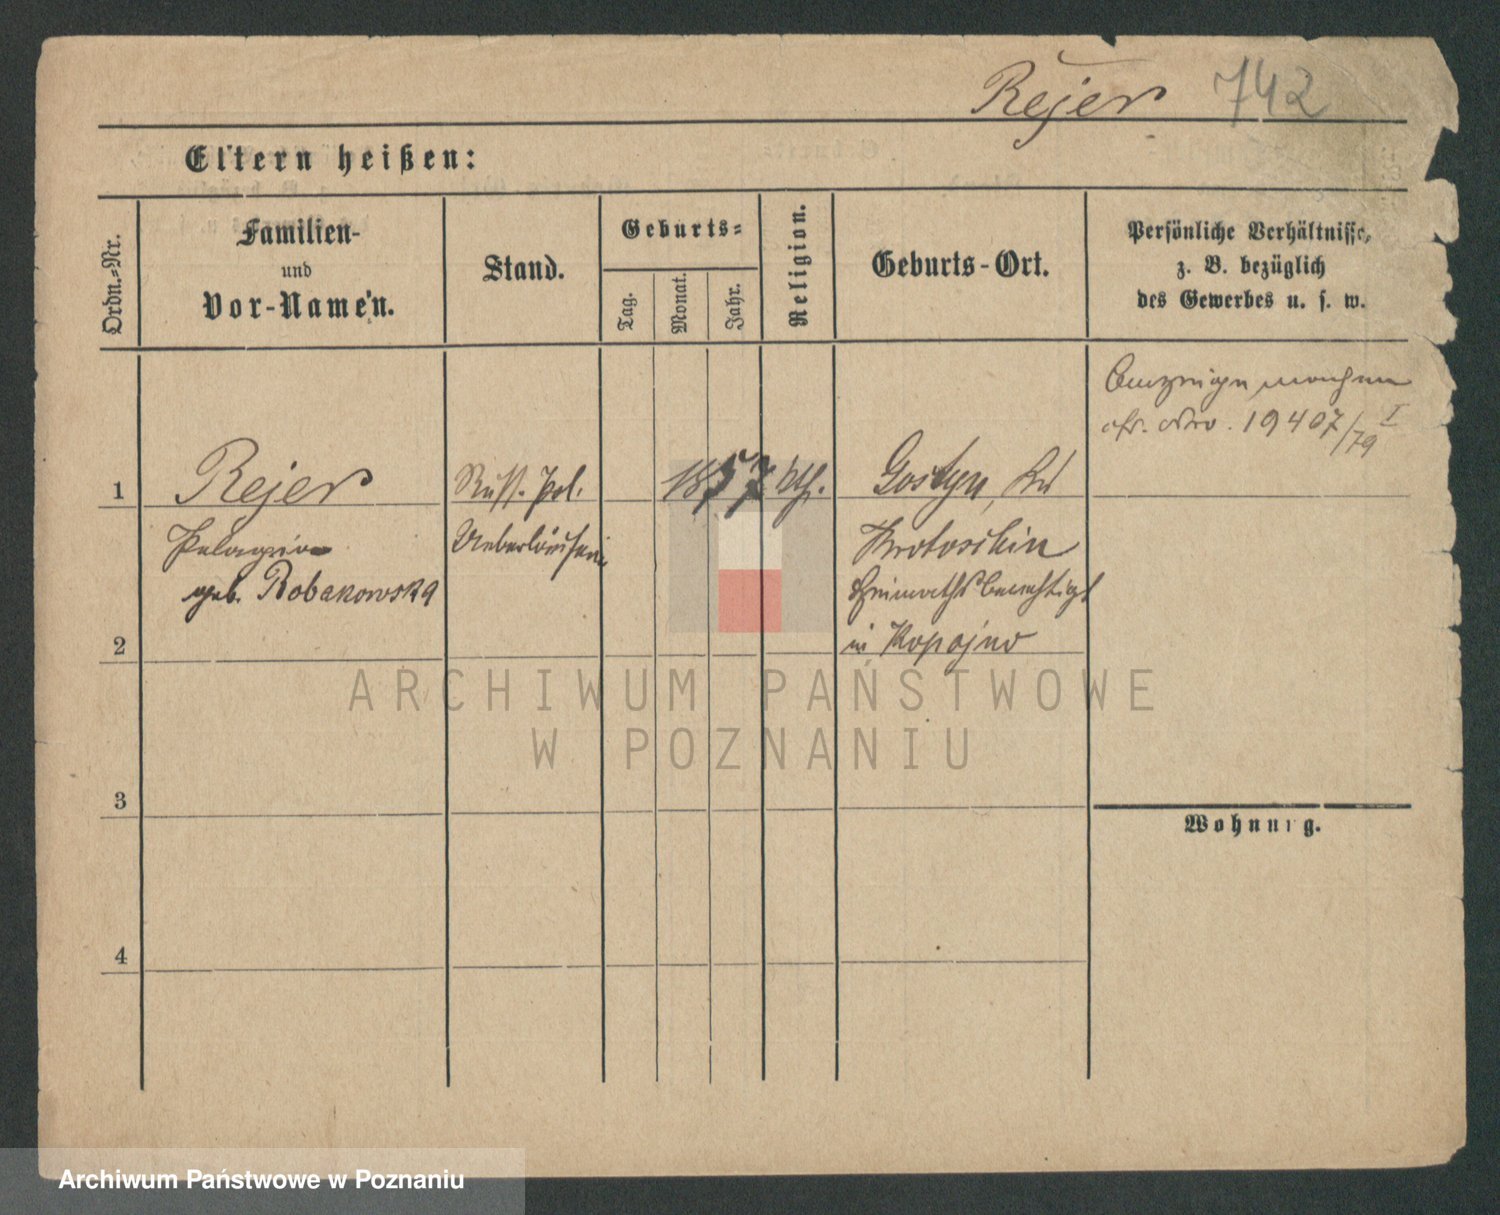 Rejer 742
Eltern heißen:
Ordn.=Nr.
Familien-
und
Vor-Namen.
Stand.
Geburts=
Tag.
Monat.
Jahr.
Religion.
Geburts-Ort.
Persönliche Verhältnisse,
z. B. bezüglich
des Gewerbes u. s. w.
cfr. 19407/79 I
1 Rejer Russ. Pol. 1857 kth. Gostyn,
Pelagia Ueberläuferin Krotoschin
geb. Robakowska heimathsberechtigt
2 in Kopojno
ARCHIWUM PAŃSTWOWE
W POZNANIU
3
Wohnung.
4
Archiwum Państwowe w Poznaniu